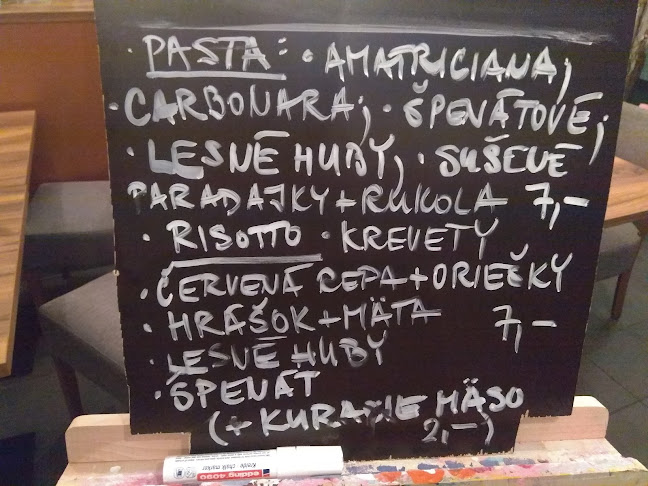 · PASTA: · AMATRICIANA;
· CARBONARA; · ŠPENÁTOVÉ;
· LESNÉ HUBY; · SUŠENÉ
PARADAJKY + RUKOLA 7,-
· RISOTTO · KREVETY
· ČERVENÁ REPA + ORIEŠKY
· HRÁŠOK + MÄTA 7,-
· LESNÉ HUBY
· ŠPENÁT
(+ KURACIE MÄSO
2,-)
edding 4090
Kreide chalk marker